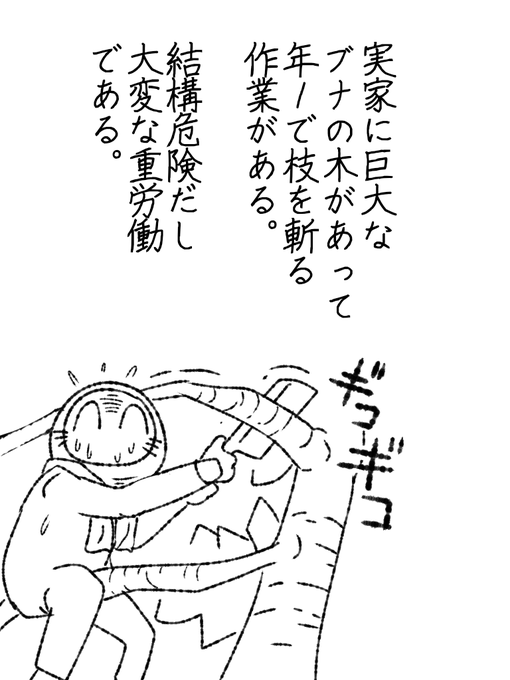 実家に巨大な
ブナの木があって
年1で枝を斬る
作業がある。
結構危険だし
大変な重労働
である。
ギコギコ